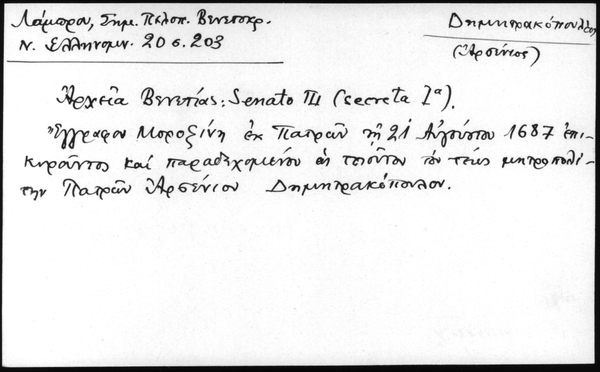 Λάμπρου, Σημ. Πελοπ. Βενετοκρ.
Ν. Ελληνομν. 20 σ. 203
Δημητρακόπουλος
(Ἀρσένιος)
Ἀρχεῖα Βενετίας: Senato III (secreta Iª).
Ἔγγραφον Μοροζίνη ἐκ Πατρῶν τῇ 21 Αὐγούστου 1687 ἐπι-
κυροῦντος καί παραδεχομένου ὡς τοιοῦτον τόν τέως μητροπολί-
την Πατρῶν Ἀρσένιον Δημητρακόπουλον.